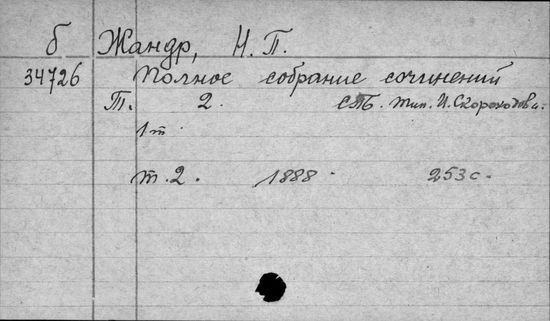 б Жандр, Н. П.
34726 Полное собрание сочинений
Т. 2. СПб. тип. И. Скороходова.
1 т.
т. 2. 1888. 253 с.